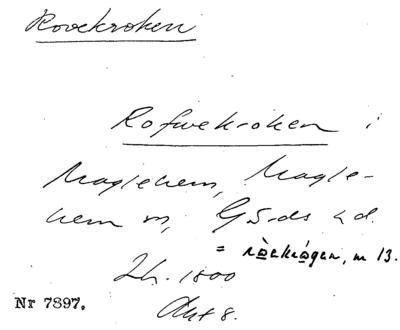 Rovekroken
Rofwekroken i
Maglehem, Magle-
hem sn, Gärds hd.
= 
Lh. 1800
Akt 8.
Nr 7897.